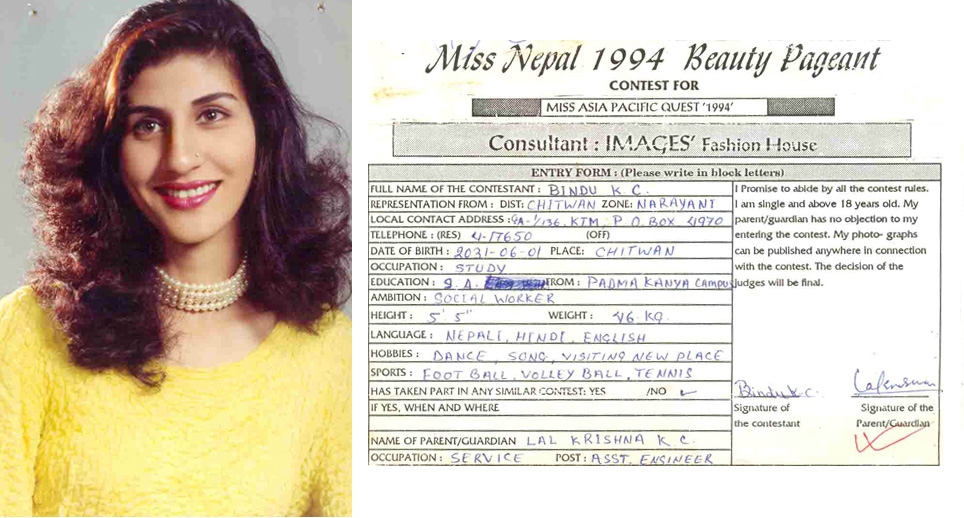 Miss Nepal 1994 Beauty Pageant
CONTEST FOR
MISS ASIA PACIFIC QUEST '1994'
Consultant : IMAGES' Fashion House
ENTRY FORM : (Please write in block letters)
FULL NAME OF THE CONTESTANT : BINDU K.C.
REPRESENTATION FROM : DIST: CHITWAN ZONE: NARAYANI
LOCAL CONTACT ADDRESS : GA-1/136, KTM, P.O. BOX 4970
TELEPHONE : (RES) 4-17650 (OFF)
DATE OF BIRTH : 2031-06-01 PLACE: CHITWAN
OCCUPATION : STUDY
EDUCATION : I.A. FROM : PADMA KANYA CAMPUS
AMBITION : SOCIAL WORKER
HEIGHT : 5' 5" WEIGHT : 46 KG.
LANGUAGE : NEPALI, HINDI, ENGLISH
HOBBIES : DANCE, SONG, VISITING NEW PLACE
SPORTS : FOOT BALL, VOLLEY BALL, TENNIS
HAS TAKEN PART IN ANY SIMILAR CONTEST: YES /NO ✓
IF YES, WHEN AND WHERE
NAME OF PARENT/GUARDIAN LAL KRISHNA K.C.
OCCUPATION : SERVICE POST : ASST. ENGINEER
I Promise to abide by all the contest rules.
I am single and above 18 years old. My
parent/guardian has no objection to my
entering the contest. My photo- graphs
can be published anywhere in connection
with the contest. The decision of the
judges will be final.
Bindu K.C.
Signature of
the contestant
Signature of the
Parent/Guardian